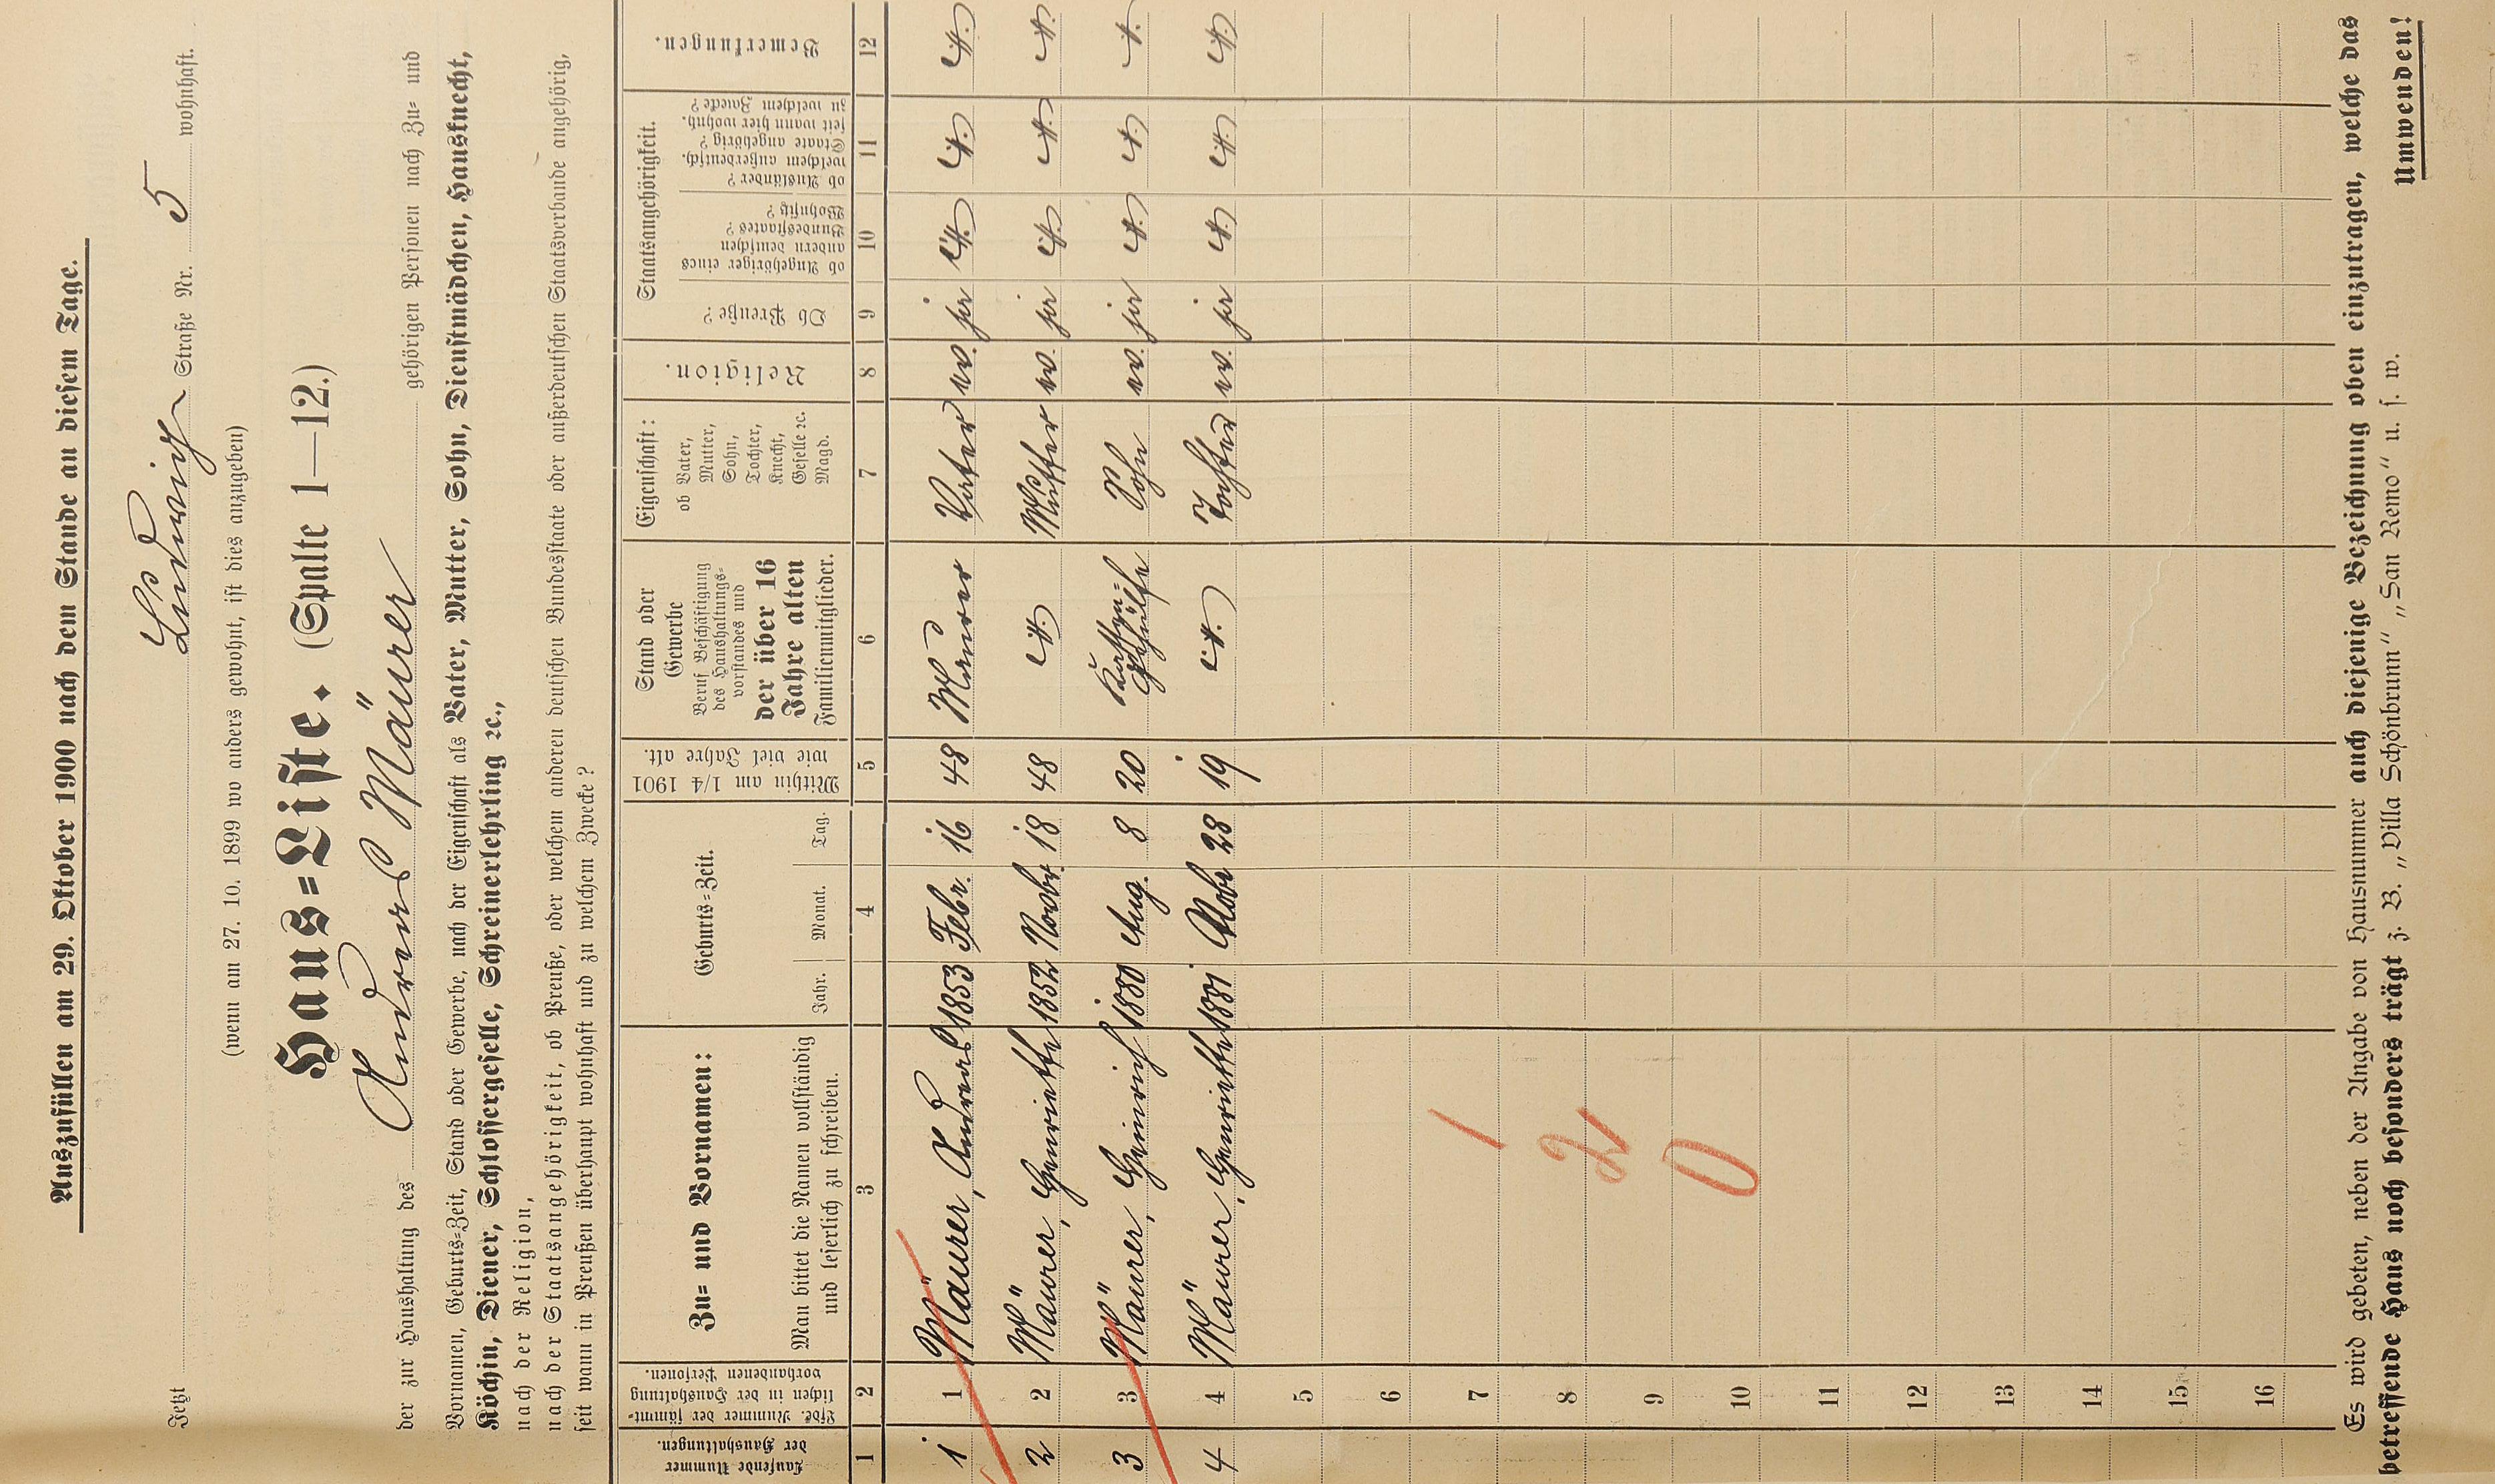 Auszufüllen am 29. Oktober 1900 nach dem Stande an diesem Tage.
Jetzt Ludwig Straße Nr. 5 wohnhaft.
(wenn am 27. 10. 1899 wo anders gewohnt, ist dies anzugeben)
Haus=Liste. (Spalte 1—12.)
der zur Haushaltung des Andreas Mäurer gehörigen Personen nach Zu= und
Vornamen, Geburts=Zeit, Stand oder Gewerbe, nach der Eigenschaft als Vater, Mutter, Sohn, Dienstmädchen, Hausknecht,
Köchin, Diener, Schlossergeselle, Schreinerlehrling ꝛc.,
nach der Religion,
nach der Staatsangehörigkeit, ob Preuße, oder welchem anderen deutschen Bundesstaate oder außerdeutschen Staatsverbande angehörig,
seit wann in Preußen überhaupt wohnhaft und zu welchem Zwecke?
Laufende Nummer der Haushaltungen.
Lfde. Nummer der sämmtlichen in der Haushaltung vorhandenen Personen.
Zu= und Vornamen:
Man bittet die Namen vollständig
und leserlich zu schreiben.
Geburts=Zeit.
Jahr. Monat. Tag.
Mithin am 1/4 1901
wie viel Jahre alt.
Stand oder
Gewerbe
Beruf Beschäftigung
des Haushaltungs-
vorstandes und
der über 16
Jahre alten
Familienmitglieder.
Eigenschaft:
ob Vater,
Mutter,
Sohn,
Tochter,
Knecht,
Geselle ꝛc.
Magd.
Religion.
Staatsangehörigkeit.
Ob Preuße?
ob Angehöriger eines
andern deutschen
Bundesstaates?
Wohnsitz?
ob Ausländer?
welchem außerdeutsch.
Staate angehörig?
seit wann hier wohnh.
zu welchem Zwecke?
Bemerkungen.
1 2 3 4 5 6 7 8 9 10 11 12
1 1 Mäurer, Andreas 1853 Febr. 16 48 Maurer Vater ev. ja
2 2 Mäurer, Henriette 1852 Novbr. 18 48 Mutter ev. ja
3 3 Mäurer, Heinrich 1880 Aug. 8 20 Sohn ev. ja
4 4 Mäurer, Henriette 1881 28 19 Tochter ev. ja
5
6
7
8
9
10
11
12
13
14
15
16
1
2
0
Es wird gebeten, neben der Angabe von Hausnummer auch diejenige Bezeichnung oben einzutragen, welche das
betreffende Haus noch besonders trägt z. B. „Villa Schönbrunn" „San Remo" u. s. w.
Umwenden!